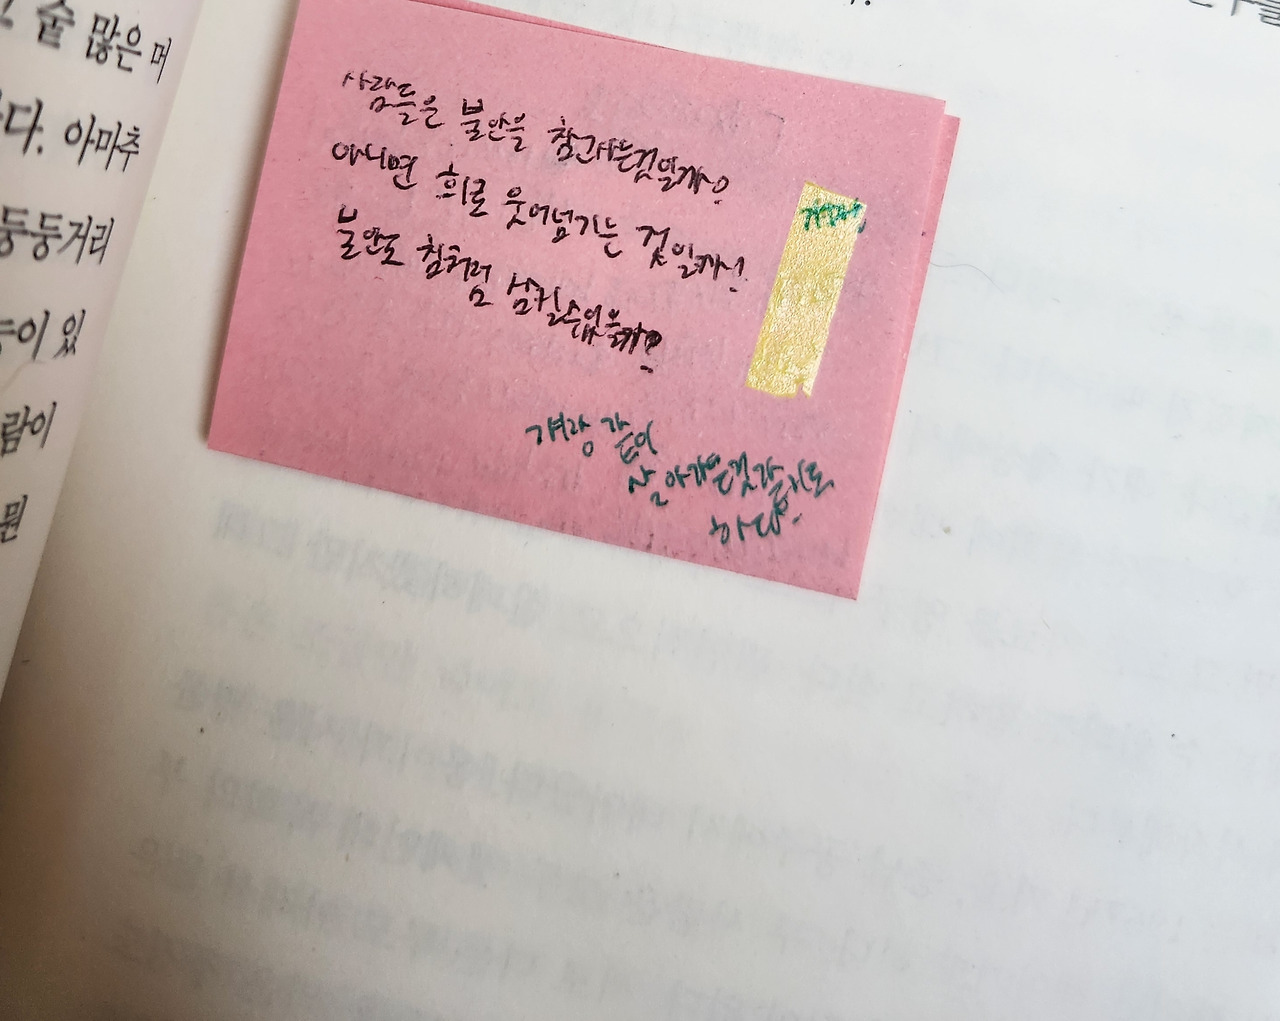 술 많은 머
다. 아마추
둥둥거리
이 있
람이
뭔
사람들은 불안을 참고사는것일까?
아니면 희로 웃어넘기는 것일까?
불안도 침처럼 삼킬수있을까?
걔랑 같이
살아가는것같기도
하다.